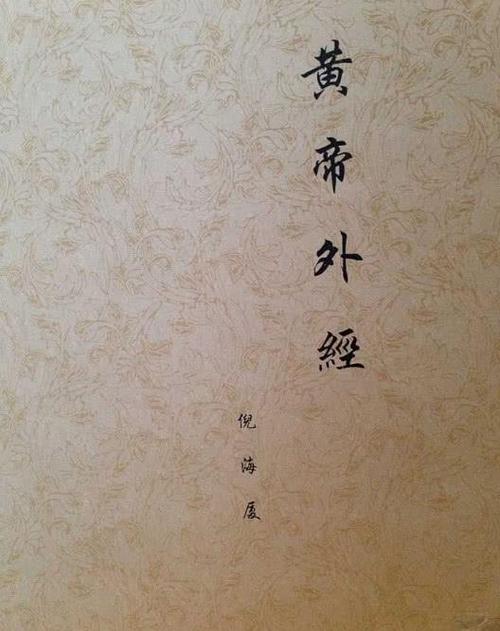 黄帝外經
倪海厦